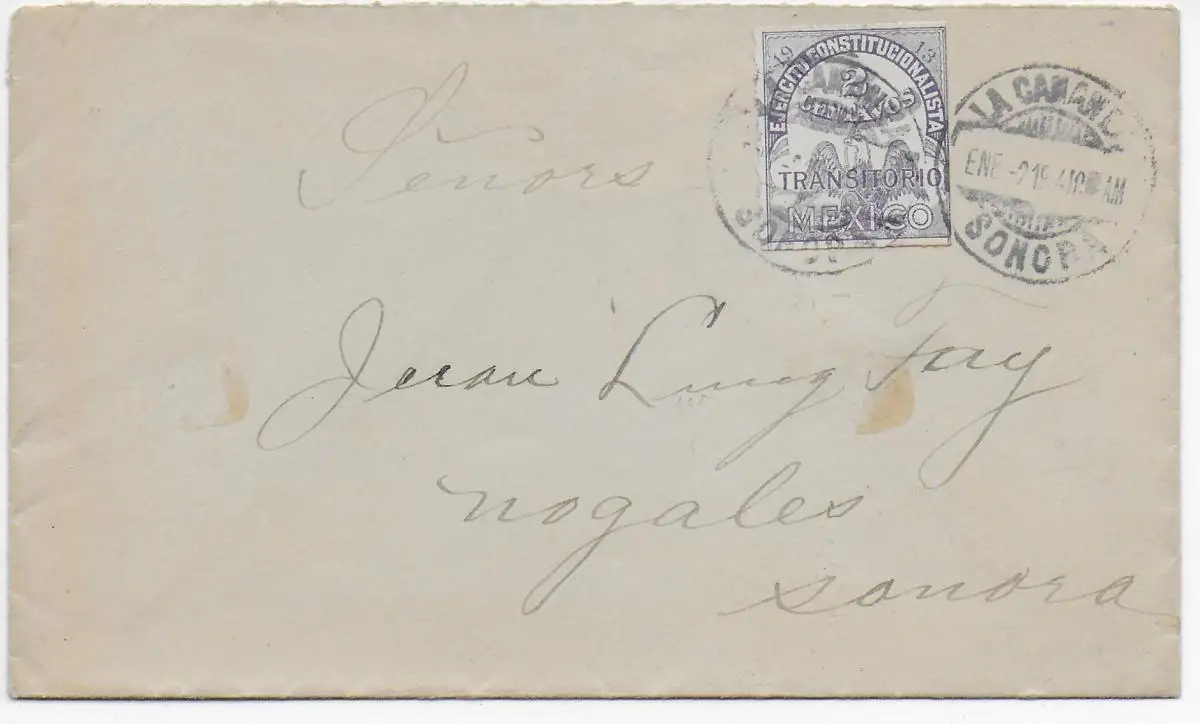 19 13
EJERCITO CONSTITUCIONALISTA
2
CENTAVOS
TRANSITORIO
MEXICO
LA CANANEA
ENE -2 19 4 10 AM
SONORA
SONORA
Señors
Lung Fay
Nogales
Sonora